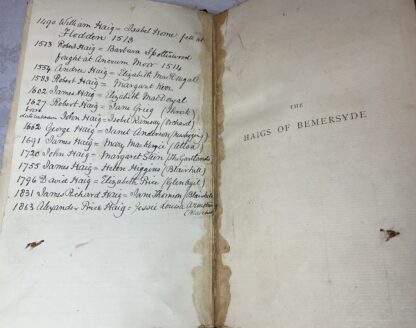 1490 William Haig = Isabel Home fell at
Flodden 1513
1573 Robert Haig = Barbara Spotteswood
fought at Ancrum Moor 1514
1554 Andrew Haig = Elizabeth MacDougal
1583 Robert Haig = Margaret Kerr
1602 James Haig = Elizabeth MacDougal
1627 Robert Haig = Jane Greig (Throsk)
John Haig = Isobel Ramsay (Orchard)
1642 George Haig = Janet Anderson (Newbigging)
1691 James Haig = Mary MacKenzie (Alloa)
1720 John Haig = Margaret Stein (The Gartlands)
1755 James Haig = Helen Higgins (Blairhill)
1796 David Haig = Elizabeth Price (Glenogil)
1831 James Richard Haig = Jane Thomson (Blairhill)
1863 Alexander Price Haig = Jessie Louisa
THE
HAIGS OF BEMERSYDE